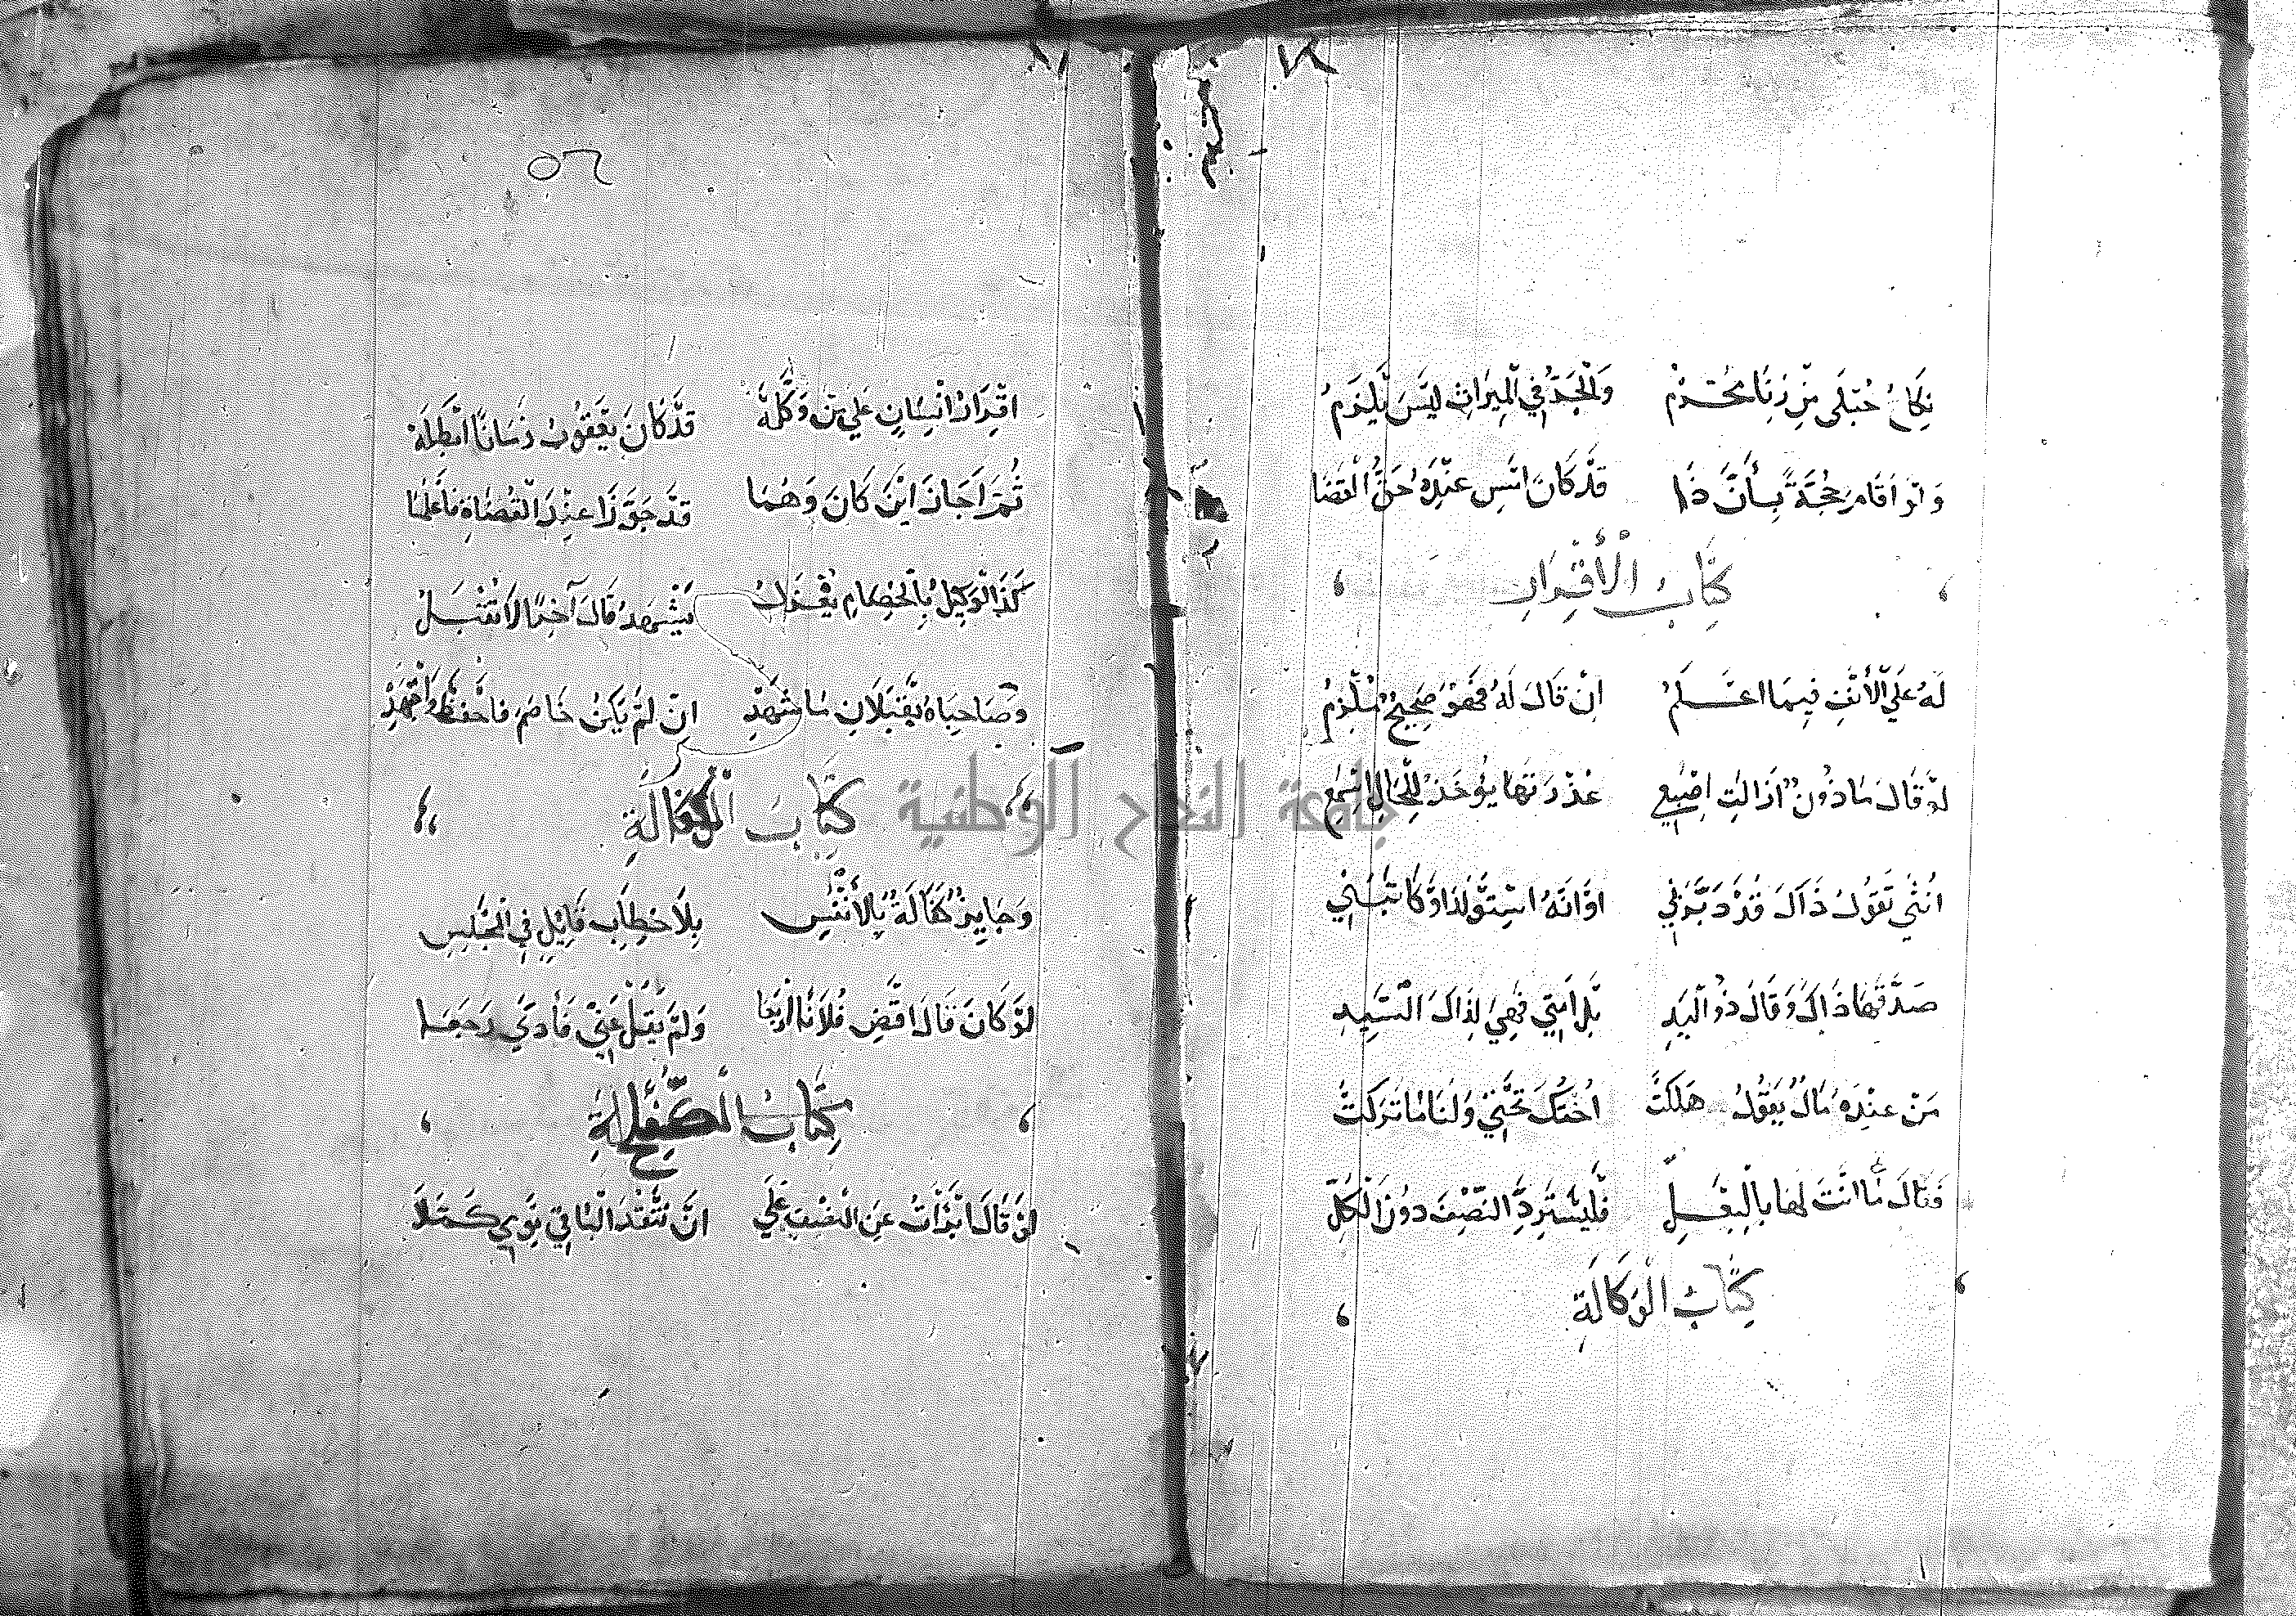 نِكَاحُ حُبْلَى مِنْ زِنَا مُحَرَّمُ وَالْجَدُّ فِي الْمِيرَاثِ لَيْسَ يَلْزَمُ
وَلَوْ اَقَامَ حُجَّةً بِأَنَّ ذَا قَدْ كَانَ اَمْسِ عِنْدَهُ حَقُّ الْقَضَا
كِتَابُ الْأَقْرَارِ
لَهُ عَلَيَّ الْأَلْفُ فِيمَا اعْلَمُ اِنْ قَالَ لَهُ فَهْوَ صَحِيحٌ مُلْزِمُ
لَوْ قَالَ مَاذُونٌ اَزَالَتْ اِصْبَعِي عُذْرَتَهَا يُؤْخَذُ لِلْحَالِ اسْمَعِ
اُنْثَى تَقُولُ ذَاكَ قَدْ دَبَّرَنِي اوْ اَنَّهُ اسْتَوْلَدَ اوْ كَاتَبَنِي
صَدَّقَهَا ذَاكَ وَقَالَ ذُو الْيَدِ بَلْ اَمَتِي فَهِيَ لِذَاكَ السَّيِّدِ
مَنْ عِنْدَهُ مَالٌ يَقُولُ هَلَكَتْ اُخْتُكَ تَحْتِي وَلَنَا مَا تَرَكَتْ
فَقَالَ مَا اَنْتَ لَهَا بِالْبَعْلِ فَلْيَسْتَرِدَّ النِّصْفَ دُونَ الْكُلِّ
كِتَابُ الْوَكَالَةِ
٥٦
اِقْرَارُ اِنْسَانٍ عَلَى مَنْ وَكَّلَهْ قَدْ كَانَ يَعْقُوبُ زَمَانًا اَبْطَلَهْ
ثُمَّ اَجَازَ اَيْنَ كَانَ وَهُمَا قَدْ جَوَّزَا عِنْدَ الْقُضَاةِ فَاعْلَمَا
كَذَا الْوَكِيلُ بِالْخِصَامِ يُعْزَلُ يَشْهَدُ قَالَ آخِرًا لَا تُقْبَلُ
وَصَاحِبَاهُ يَقْبَلَانِ مَا شَهِدْ اِنْ لَمْ يَكُنْ خَاصَمَ فَاحْفَظْ
كِتَابُ الْكَفَالَةِ
وَجَايِزٌ كَفَالَةٌ بِالْأَنْفُسِ بِلَا خِطَابِ قَائِلٍ فِي الْمَجْلِسِ
لَوْ كَانَ قَالَ اقْضِ فُلَانًا اَرْبَعَا وَلَمْ يَقُلْ عَنِّي فَأَدَّى رَجَعَا
كِتَابُ
لَوْ قَالَ اَبْرَأْتُ عَنِ النِّصْفِ عَلَى اَنْ تَنْقُدَ الْبَاقِيَ
جامعة النجاح الوطنية